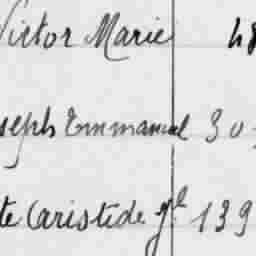 Victor Marie 48
seph Emmanuel 30
te Caristide Jl 139